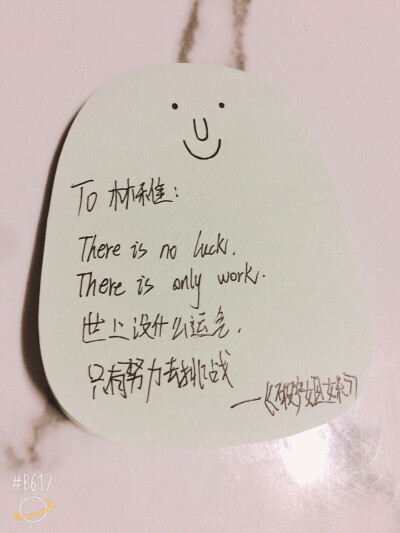 To 林稚:
There is no luck.
There is only work.
世上没什么运气,
只有努力去挑战
—《破产姐妹》
#B612